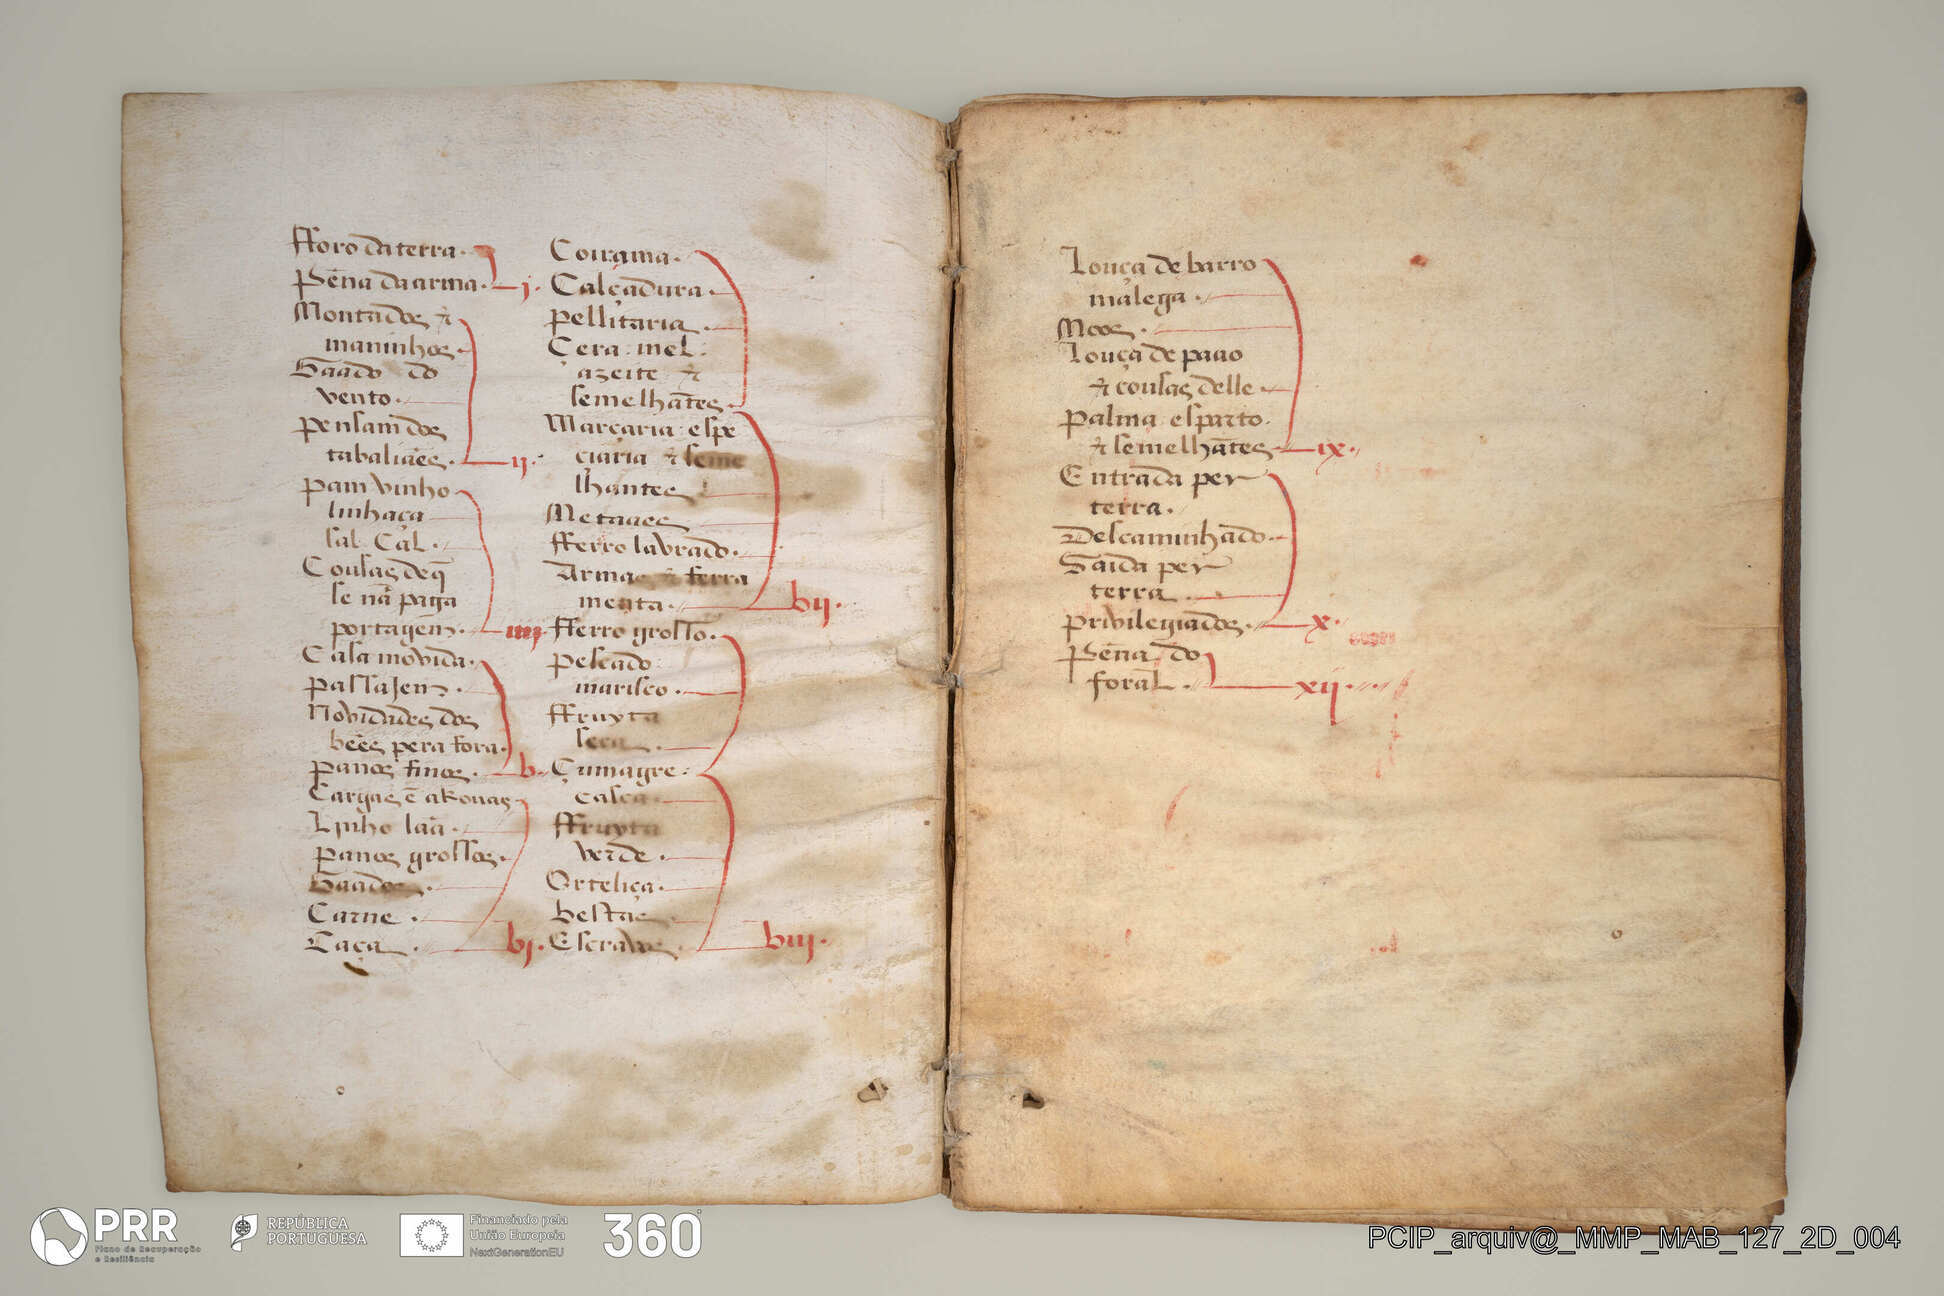 fforo da terra.
Pẽna da arma. j.
Montados ⁊
maninhos.
Gaado do
vento.
pensam dos
tabaliães. ij.
pam vinho
linhaça
sal. Cal.
Cousas de q̃
se nã paga
portagem. iiij.
Casa movida.
passajem.
Novidades dos
beẽs pera fora.
panos finos. b.
Cargas ẽ arrouas
Linho laã.
panos grossos.
Gaados.
Carne.
Caça. bj.
Coirama.
Calçadura.
pellitaria.
Çera. mel.
azeite ⁊
semelhãtes.
Marçaria. espe
ciaria ⁊ seme
lhantes
Metaaes
fferro lavrado.
Armas ⁊ ferra
menta. bij.
fferro grosso.
pescado
marisco.
ffruyta
seca.
Çumagre.
casca
ffruyta
verde.
Orteliça.
bestas
Escravos. biij.
Louça de barro
malega.
Moos.
Louça de paao
⁊ cousas delle.
palma. esparto.
⁊ semelhãtes. ix.
Entrada per
terra.
Descaminhado.
Saida per
terra.
privilegiados. x.
Pẽna do
foral. xij.
PRR
Plano de Recuperação
e Resiliência
REPÚBLICA
PORTUGUESA
Financiado pela
União Europeia
NextGenerationEU
360°
PCIP_arquiv@_MMP_MAB_127_2D_004